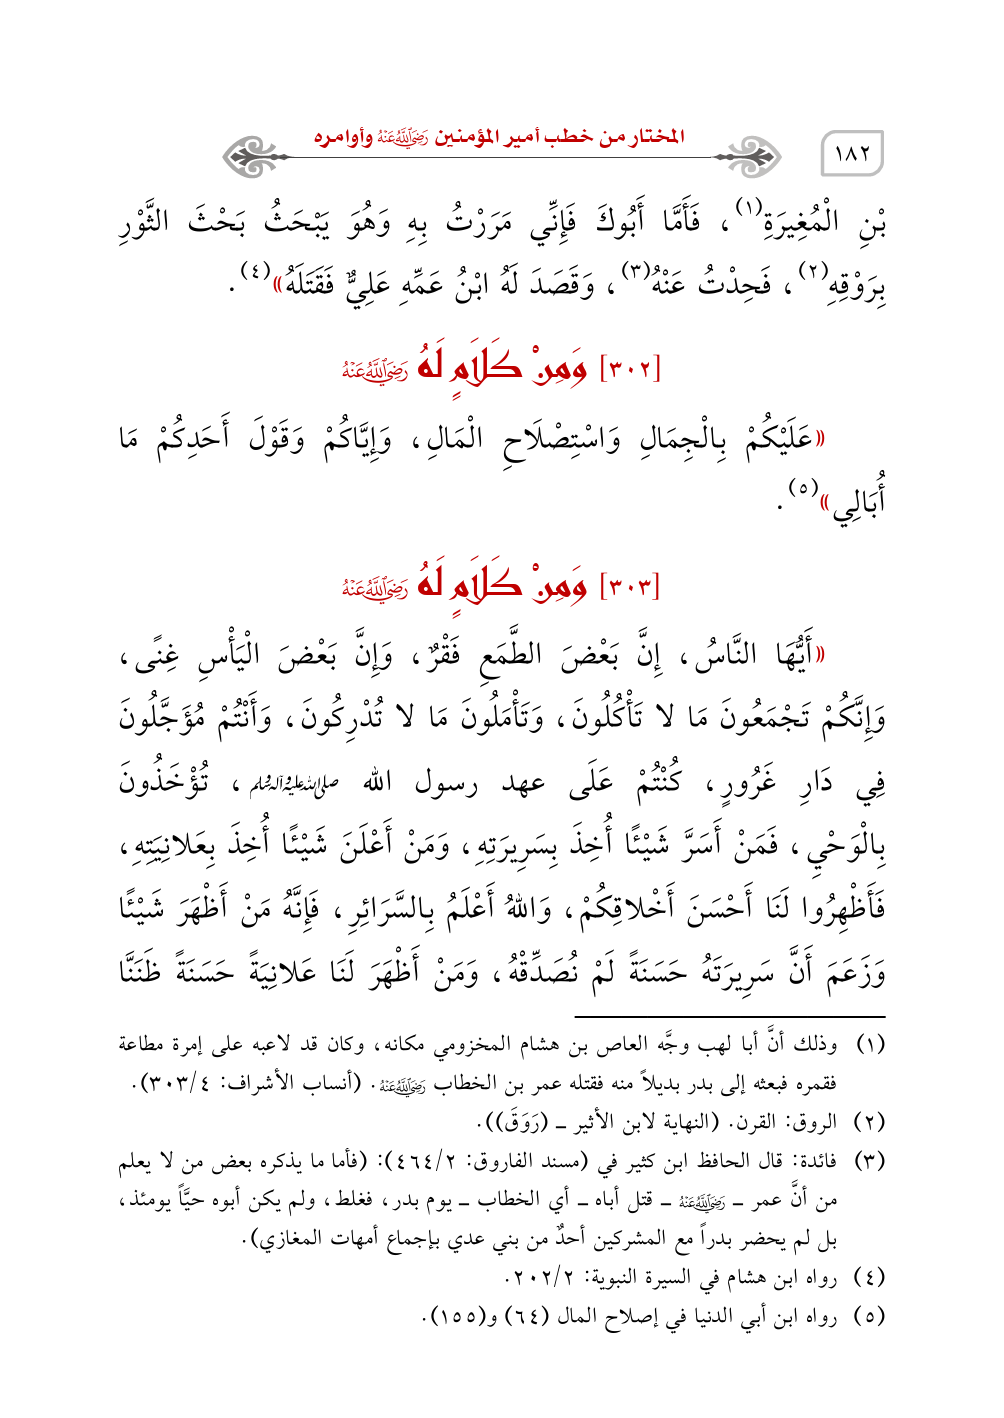 المختار من خطب أمير المؤمنين رَضِيَ اللَّهُ عَنْهُ وأوامره
١٨٢
بْنِ الْمُغِيرَةِ(١)، فَأَمَّا أَبُوكَ فَإِنِّي مَرَرْتُ بِهِ وَهُوَ يَبْحَثُ بَحْثَ الثَّوْرِ
بِرَوْقِهِ(٢)، فَحِدْتُ عَنْهُ(٣)، وَقَصَدَ لَهُ ابْنُ عَمِّهِ عَلِيٌّ فَقَتَلَهُ»(٤).
[٣٠٢] وَمِنْ كَلَامٍ لَهُ رَضِيَ اللَّهُ عَنْهُ
«عَلَيْكُمْ بِالْجِمَالِ وَاسْتِصْلَاحِ الْمَالِ، وَإِيَّاكُمْ وَقَوْلَ أَحَدِكُمْ مَا
أُبَالِي»(٥).
[٣٠٣] وَمِنْ كَلَامٍ لَهُ رَضِيَ اللَّهُ عَنْهُ
«أَيُّهَا النَّاسُ، إِنَّ بَعْضَ الطَّمَعِ فَقْرٌ، وَإِنَّ بَعْضَ الْيَأْسِ غِنًى،
وَإِنَّكُمْ تَجْمَعُونَ مَا لا تَأْكُلُونَ، وَتَأْمَلُونَ مَا لا تُدْرِكُونَ، وَأَنْتُمْ مُؤَجَّلُونَ
فِي دَارِ غَرُورٍ، كُنْتُمْ عَلَى عهد رسول الله صلى الله عليه وآله وسلم، تُؤْخَذُونَ
بِالْوَحْيِ، فَمَنْ أَسَرَّ شَيْئًا أُخِذَ بِسَرِيرَتِهِ، وَمَنْ أَعْلَنَ شَيْئًا أُخِذَ بِعَلانِيَتِهِ،
فَأَظْهِرُوا لَنَا أَحْسَنَ أَخْلاقِكُمْ، وَاللهُ أَعْلَمُ بِالسَّرَائِرِ، فَإِنَّهُ مَنْ أَظْهَرَ شَيْئًا
وَزَعَمَ أَنَّ سَرِيرَتَهُ حَسَنَةً لَمْ نُصَدِّقْهُ، وَمَنْ أَظْهَرَ لَنَا عَلانِيَةً حَسَنَةً ظَنَنَّا
(١) وذلك أنَّ أبا لهب وجَّه العاص بن هشام المخزومي مكانه، وكان قد لاعبه على إمرة مطاعة
فقمره فبعثه إلى بدر بديلاً منه فقتله عمر بن الخطاب رَضِيَ اللَّهُ عَنْهُ. (أنساب الأشراف: ٣٠٣/٤).
(٢) الروق: القرن. (النهاية لابن الأثير ـ (رَوَقَ)).
(٣) فائدة: قال الحافظ ابن كثير في (مسند الفاروق: ٤٦٤/٢): (فأما ما يذكره بعض من لا يعلم
من أنَّ عمر ـ رَضِيَ اللَّهُ عَنْهُ ـ قتل أباه ـ أي الخطاب ـ يوم بدر، فغلط، ولم يكن أبوه حيَّاً يومئذ،
بل لم يحضر بدراً مع المشركين أحدٌ من بني عدي بإجماع أمهات المغازي).
(٤) رواه ابن هشام في السيرة النبوية: ٢٠٢/٢.
(٥) رواه ابن أبي الدنيا في إصلاح المال (٦٤) و(١٥٥).